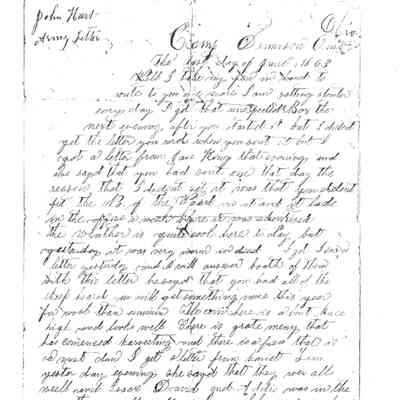 John Hart
Army Letter
Ohio
Camp Dennison
The last day of June 1863
Well I take my pen in hand to
write to you once more I am getting stouter
every day I got that unexpected Box the
next evening after you started it but I didnt
get the letter you when you sent it but I
got a letter from Jane King that evening and
she sayd that you had sent one that day the
reason that I didnt get it was that you didnt
put the No. of the Ward on it and it lade
in the office a week before it was
the weather is quite cool here to day but
yesterday it was very warm indeed I got
letter yesterday and I will answer booth of them
with this letter he sayd that you had all of the
we will get something more this year
for wool than Corn here is about
high and looks well There is grate meny that
has comenced harvesting and there is a few that is
a most dun I got a letter from
yester day evening she sayd that they was all
well and was in the